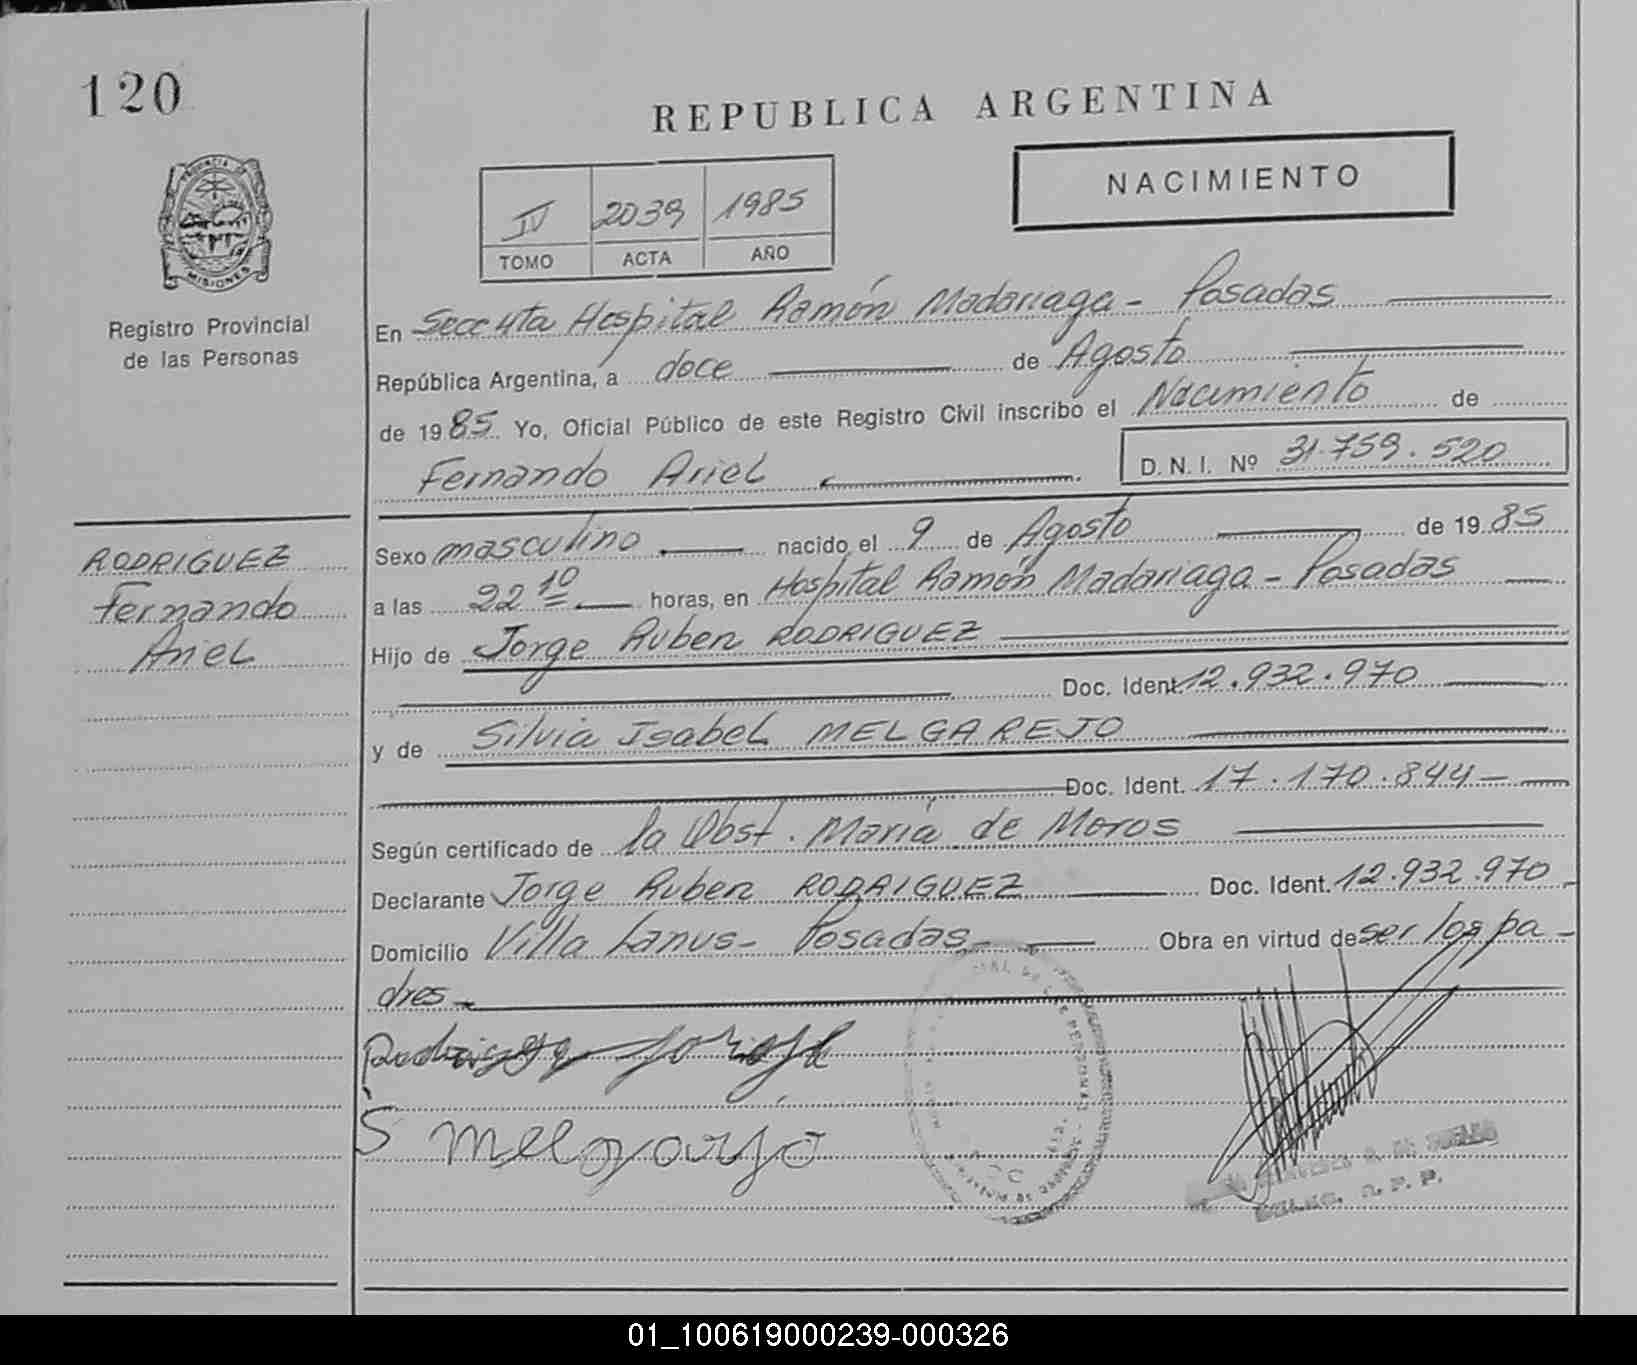 120
REPUBLICA ARGENTINA
NACIMIENTO
IV 2039 1985
TOMO ACTA AÑO
PROVINCIA DE
MISIONES
Registro Provincial
de las Personas
En Secc 4ta Hospital Ramón Madariaga - Posadas
República Argentina, a doce de Agosto
de 1985 Yo, Oficial Público de este Registro Civil inscribo el Nacimiento de
Fernando Ariel D. N. I. Nº 31.759.520
RODRIGUEZ
Fernando
Ariel
Sexo masculino nacido el 9 de Agosto de 1985
a las 22 10 horas, en Hospital Ramón Madariaga - Posadas
Hijo de Jorge Ruben RODRIGUEZ
Doc. Ident. 12.932.970
y de Silvia Isabel MELGAREJO
Doc. Ident. 17.170.844
Según certificado de la Obst. María de Moros
Declarante Jorge Ruben RODRIGUEZ Doc. Ident. 12.932.970
Domicilio Villa Lanus - Posadas Obra en virtud de ser los pa-
dres
Rodriguez Jorge R
S Melgarejo
01_100619000239-000326